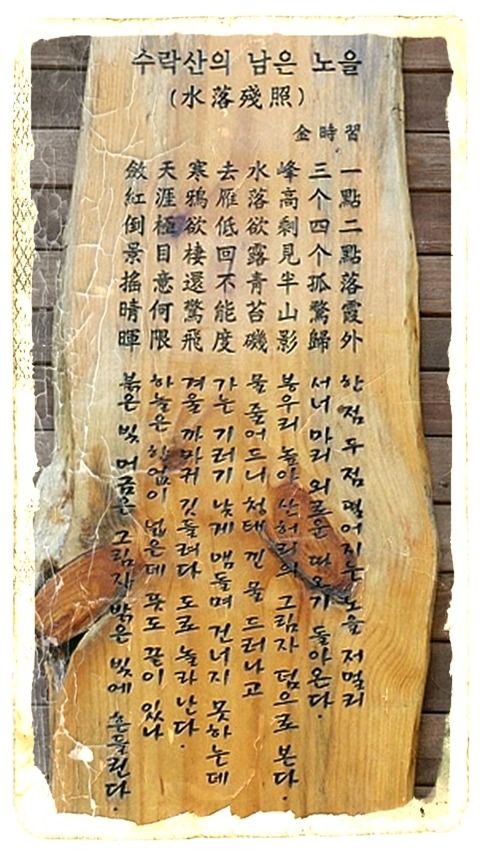 수락산의 남은 노을
(水落殘照)
金時習
一點二點落霞外
三个四个孤鶩歸
峰高剩見半山影
水落欲露青苔磯
去雁低回不能度
寒鴉欲棲還驚飛
天涯極目意何限
斂紅倒景搖晴暉
한 점 두 점 떨어지는 노을 저멀리
서너 마리 외로운 따오기 돌아온다.
봉우리 높아 산허리의 그림자 덤으로 본다.
물 줄어드니 청태 낀 돌 드러나고
가는 기러기 낮게 맴돌며 건너지 못하는데
겨울 까마귀 깃들려다 도로 놀라 난다.
하늘은 한없이 넓은데 뜻도 끝이 있나
붉은 빛 머금은 그림자 밝은 빛에 흔들린다.